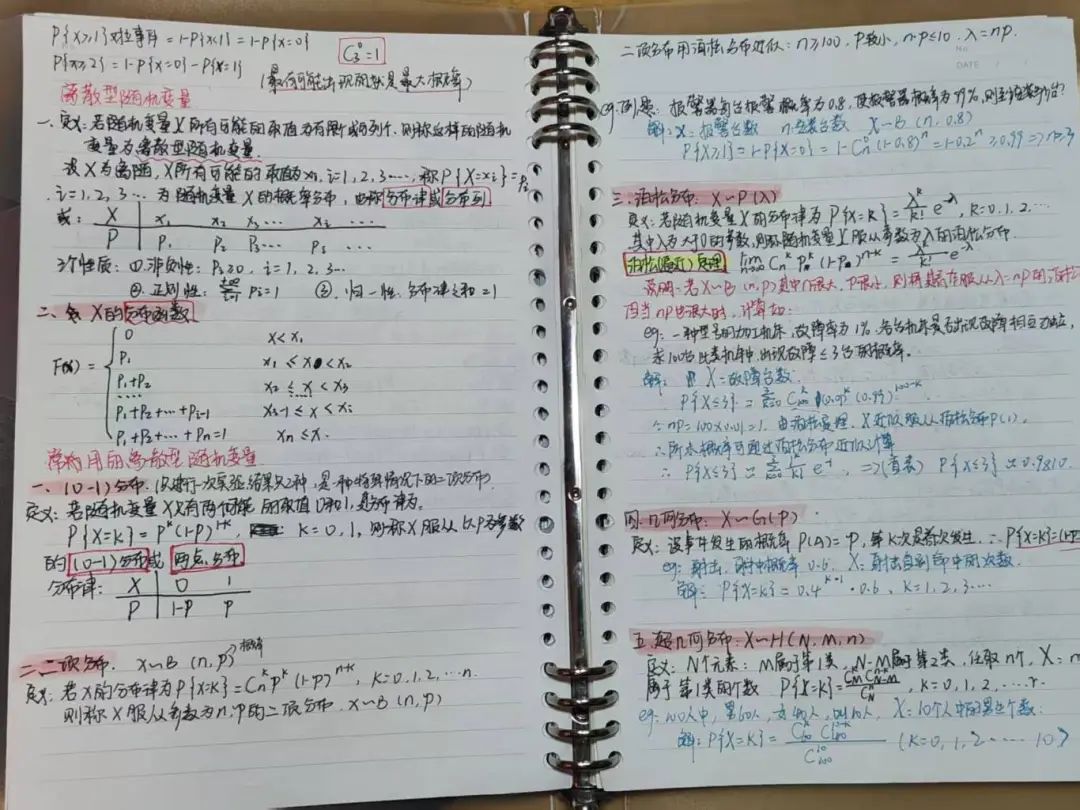 P{X≥1}对立事件 = 1-P{X<1} = 1-P{X=0}
P{X≥2} = 1-P{X=0}-P{X=1}
C₃⁰=1
(最有可能出现的就是最大概率)
离散型随机变量
一、定义:若随机变量X所有可能的取值为有限个或可列个,则称这样的随机
变量为离散型随机变量.
设X为离随,X所有可能的取值为xᵢ, i=1,2,3…,称P{X=xᵢ}=Pᵢ
i=1,2,3… 为随机变量X的概率分布,也称分布律或分布列
或: X x₁ x₂ x₃… xᵢ ….
P P₁ P₂ P₃… Pᵢ ….
3个性质: ①.非负性: Pᵢ≥0, i=1,2,3…
②.正则性: Pᵢ=1 ③.归一性.分布律之和=1
二、 X的分布函数
F(x)= { 0 x<x₁
P₁ x₁≤x<x₂
P₁+P₂ x₂≤x<x₃
…. ….
P₁+P₂+…+Pᵢ₋₁ xᵢ₋₁≤x<xᵢ
P₁+P₂+…+Pn=1 xn≤x.
常用的离散型随机变量
一、(0-1)分布.(只进行一次实验,结果只2种,是一种特殊情况下的二项分布.
定义:若随机变量X只有两个可能的取值0和1,其分布律为.
P{X=k}=Pᵏ(1-P)¹⁻ᵏ, k=0,1,则称X服从以P为参数
的(0-1)分布或两点分布.
分布律: X 0 1
P 1-P P
二、二项分布. X~B(n,p) 概率
定义:若X的分布律为P{X=k}=Cₙᵏpᵏ(1-p)ⁿ⁻ᵏ, k=0,1,2,…n.
则称X服从参数为n,p的二项分布. X~B(n,p)
二项分布用泊松分布近似: n≥100, P较小, n·p≤10. λ=np.
No
DATE / /
eg.例题: 报警器每台报警概率为0.8,使报警器概率为99%,则至少
解: X=报警台数 n=总台数 X~B(n,0.8)
P{X≥1}=1-P{X=0}=1-Cₙ⁰(1-0.8)ⁿ=1-0.2ⁿ≥0.99=>n≥3
三、泊松分布: X~P(λ)
定义:若随机变量X的分布律为P{X=k}=λᵏ/k! e^-λ, k=0,1,2,…
其中λ为大于0的参数,则称随机变量X服从参数为λ的泊松分布.
泊松(逼近)定理 lim n→∞ Cₙᵏ Pₙᵏ(1-Pₙ)ⁿ⁻ᵏ = λᵏ/k! e^-λ
说明:若X~B(n,p)其中n很大,p很小,则 λ=np的泊松
当np 大时,计算如:
eg: 一种型号的加工机床,故障率为1%.各台机床是否出现故障相互独立,
求100台此类机床中,出现故障≤3台的概率.
解: X=故障台数.
P{X≤3}= C₁₀₀ᵏ(0.01)ᵏ(0.99)¹⁰⁰⁻ᵏ
∵ np=100×0.01=1. 由泊松定理, X近似服从泊松分布P(1).
∴所求概率可通过泊松分布近似计算
∴ P{X≤3}≈ 1/k! e⁻¹, =>(查表) P{X≤3}≈0.9810.
四、几何分布: X~G(P).
定义:设事件发生的概率P(A)=P,第K次是首次发生. ∴P{X=k}=(1-P)
eg: 射击,射中概率0.6. X:射击直到命中的次数.
解: P{X=k}=0.4ᵏ⁻¹·0.6, k=1,2,3….
五、超几何分布: X~H(N,M,n)
定义: N个元素: M属于第1类, N-M属于第2类,任取n个, X=
属于第1类的个数 P{X=k}= , k=0,1,2,….r.
eg: 100人中,男60人,女40人,取10人, X:10个人中的男生个数.
解: P{X=k}= /C₁₀₀¹⁰ (k=0,1,2……10)